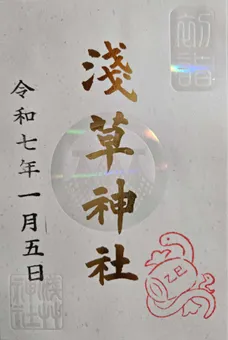 初詣
淺草神社
令和七年一月五日
淺草
神社